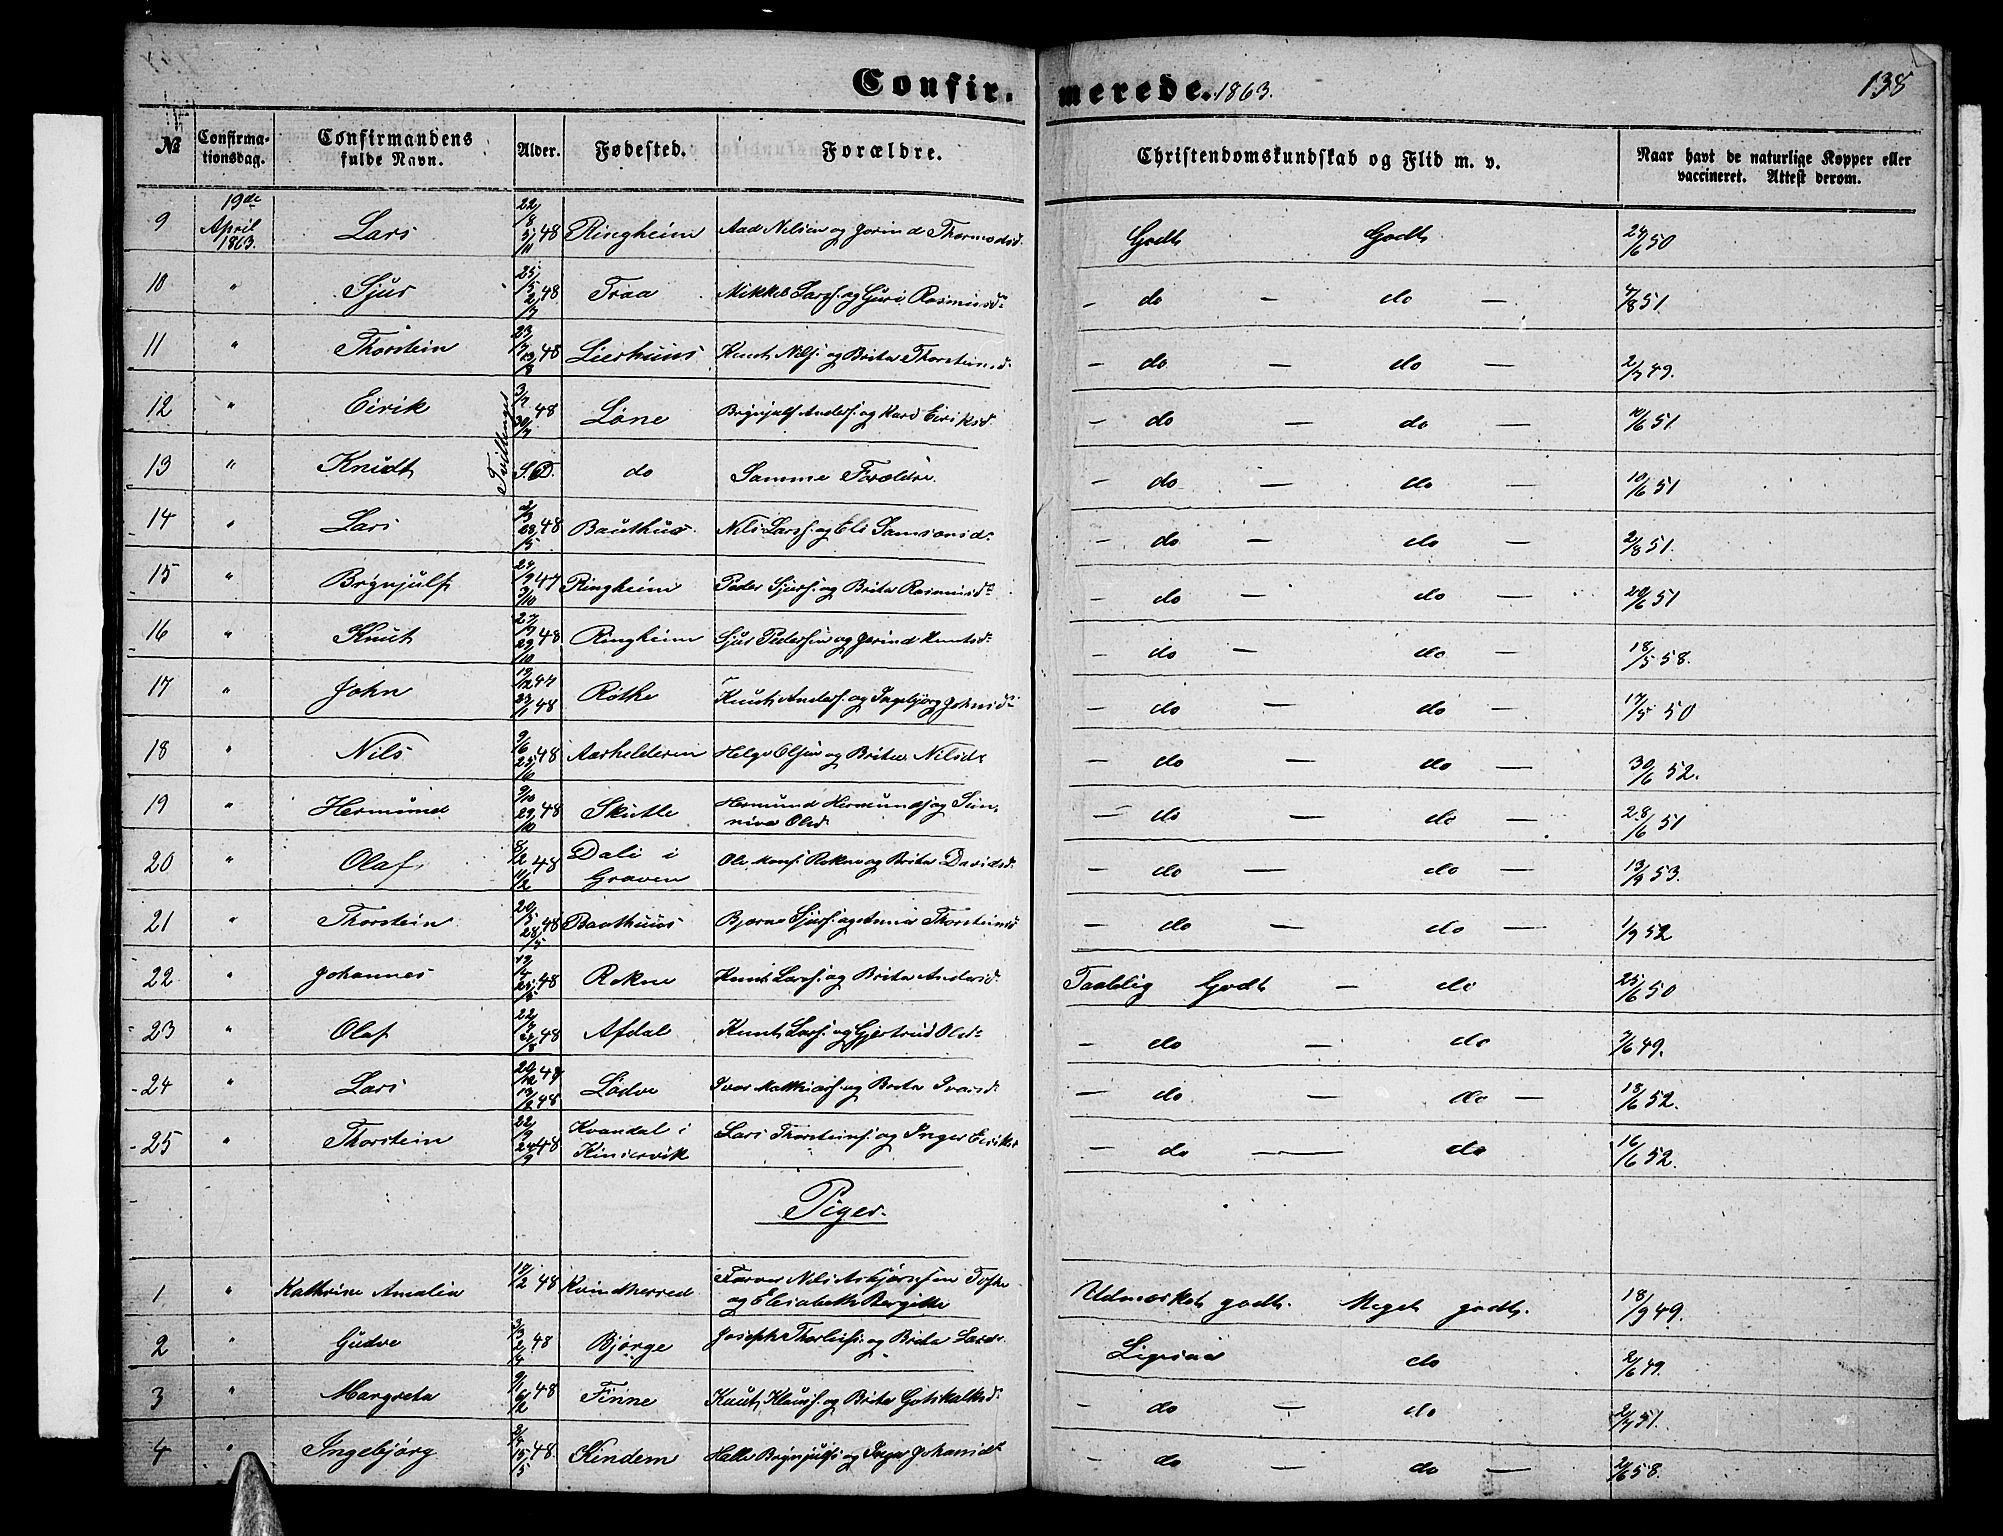 Confirmerede. 1863.
138
№ Confirmationsdag. Confirmandens fulde Navn. Alder. Fødested. Forældre. Christendomskundskab og Flid m. v. Naar havt de naturlige Kopper eller vaccineret. Attest derom.
9 19de April 1863. Lars 22/8 5/11 48 Ringheim Aad Nilsen og Jorind Thormodsd. Godt Godt 24/6 50
10 " Sjur 25/5 2/7 48 Traa Mikkel Larss. og Guri Rasmusdr. - do - do - 4/8 51.
11 " Thorstein 48 Lierhuus Knut Nils. og Brita Thorsteinsd. - do - do - 2/7 49.
12 " Eirik Tvillinger 3/7 30/7 48 Løne Brynjulf Anders. og Kari Eiriksd. - do - do - 10/6 51
13 " Knudt S. D. do Samme Forældre. - do - do - 10/6 51
14 " Lars 48 Bauthus Nils Larss. og Eli Samsonsdr. - do - do - 2/8 51.
15 " Brynjulf 47 Ringheim Peder Sjurs. og Brita Rasmusdr. - do - do - 20/6 51
16 " Knut 48 Ringheim Sjur Pedersen og Jorind Knutsdr. - do - do - 18/5 58.
17 " John 19/12 47 23/1 48 Rothe Knut Anders. og Ingebjørg Johnsdr. - do - do - 17/5 50
18 " Nils 9/6 25/6 48 Aarhelderen Helge Olsen og Brita Nilsdr. - do - do - 30/6 52.
19 " Hermund 9/10 29/10 48 Skutle Hermund Hermunds. og Sunniva Olsd. - do - do - 28/6 51
20 " Olaf 8/2 11/2 48 Dali i Graven Ole Rokne og Brita Davidsd. - do - do - 13/9 53.
21 " Thorstein 20/5 28/5 48 Baathuus Bjørne Sjurs. og Anna Thorsteinsd. - do - do - 1/9 52
22 " Johannes 48 Rokne Knut Larss. og Brita Andersd. Taalelig Godt - do 25/6 50
23 " Olaf 48 Afdal Knut Larss. og Gjertrud Olsdr. - do - do 7/6 49.
24 " Lars 48 Lødve Ivar Mathias. og Brita Ivarsd. - do - do - 18/6 52.
25 " Thorstein 22/9 24/9 48 Kvandal i Kinservik Lars Thorsteins. og Inger Eiriksd. - do - do 16/6 52.
Piger.
1 " Kathrine Amalia 48 Kvindherred Farver Nils Asbjørnsen Tofte og Elisabeth Bergitte Udmærket godt. Meget godt. 18/9 49.
2 " Gudve 3/3 2/4 48 Bjørge Joseph Thorleifs. og Brita Larsdr. Ligesaa do 2/6 49.
3 " Margreta 9/1 6/2 48 Finne Knut Klaus. og Brita Gotskalksd. - do - do 2/7 51.
4 " Ingebjørg 48 Kindem Halle Brynjulfs. og Inger Johansdr. - do - do - 2/6 58.